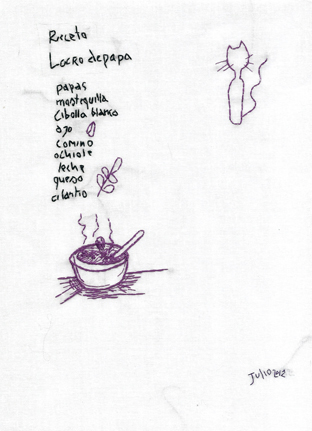 Receta
Locro de papa
papas
mantequilla
Cibolla blanca
ajo
comino
achiote
leche
queso
cilantro
Julio 2012